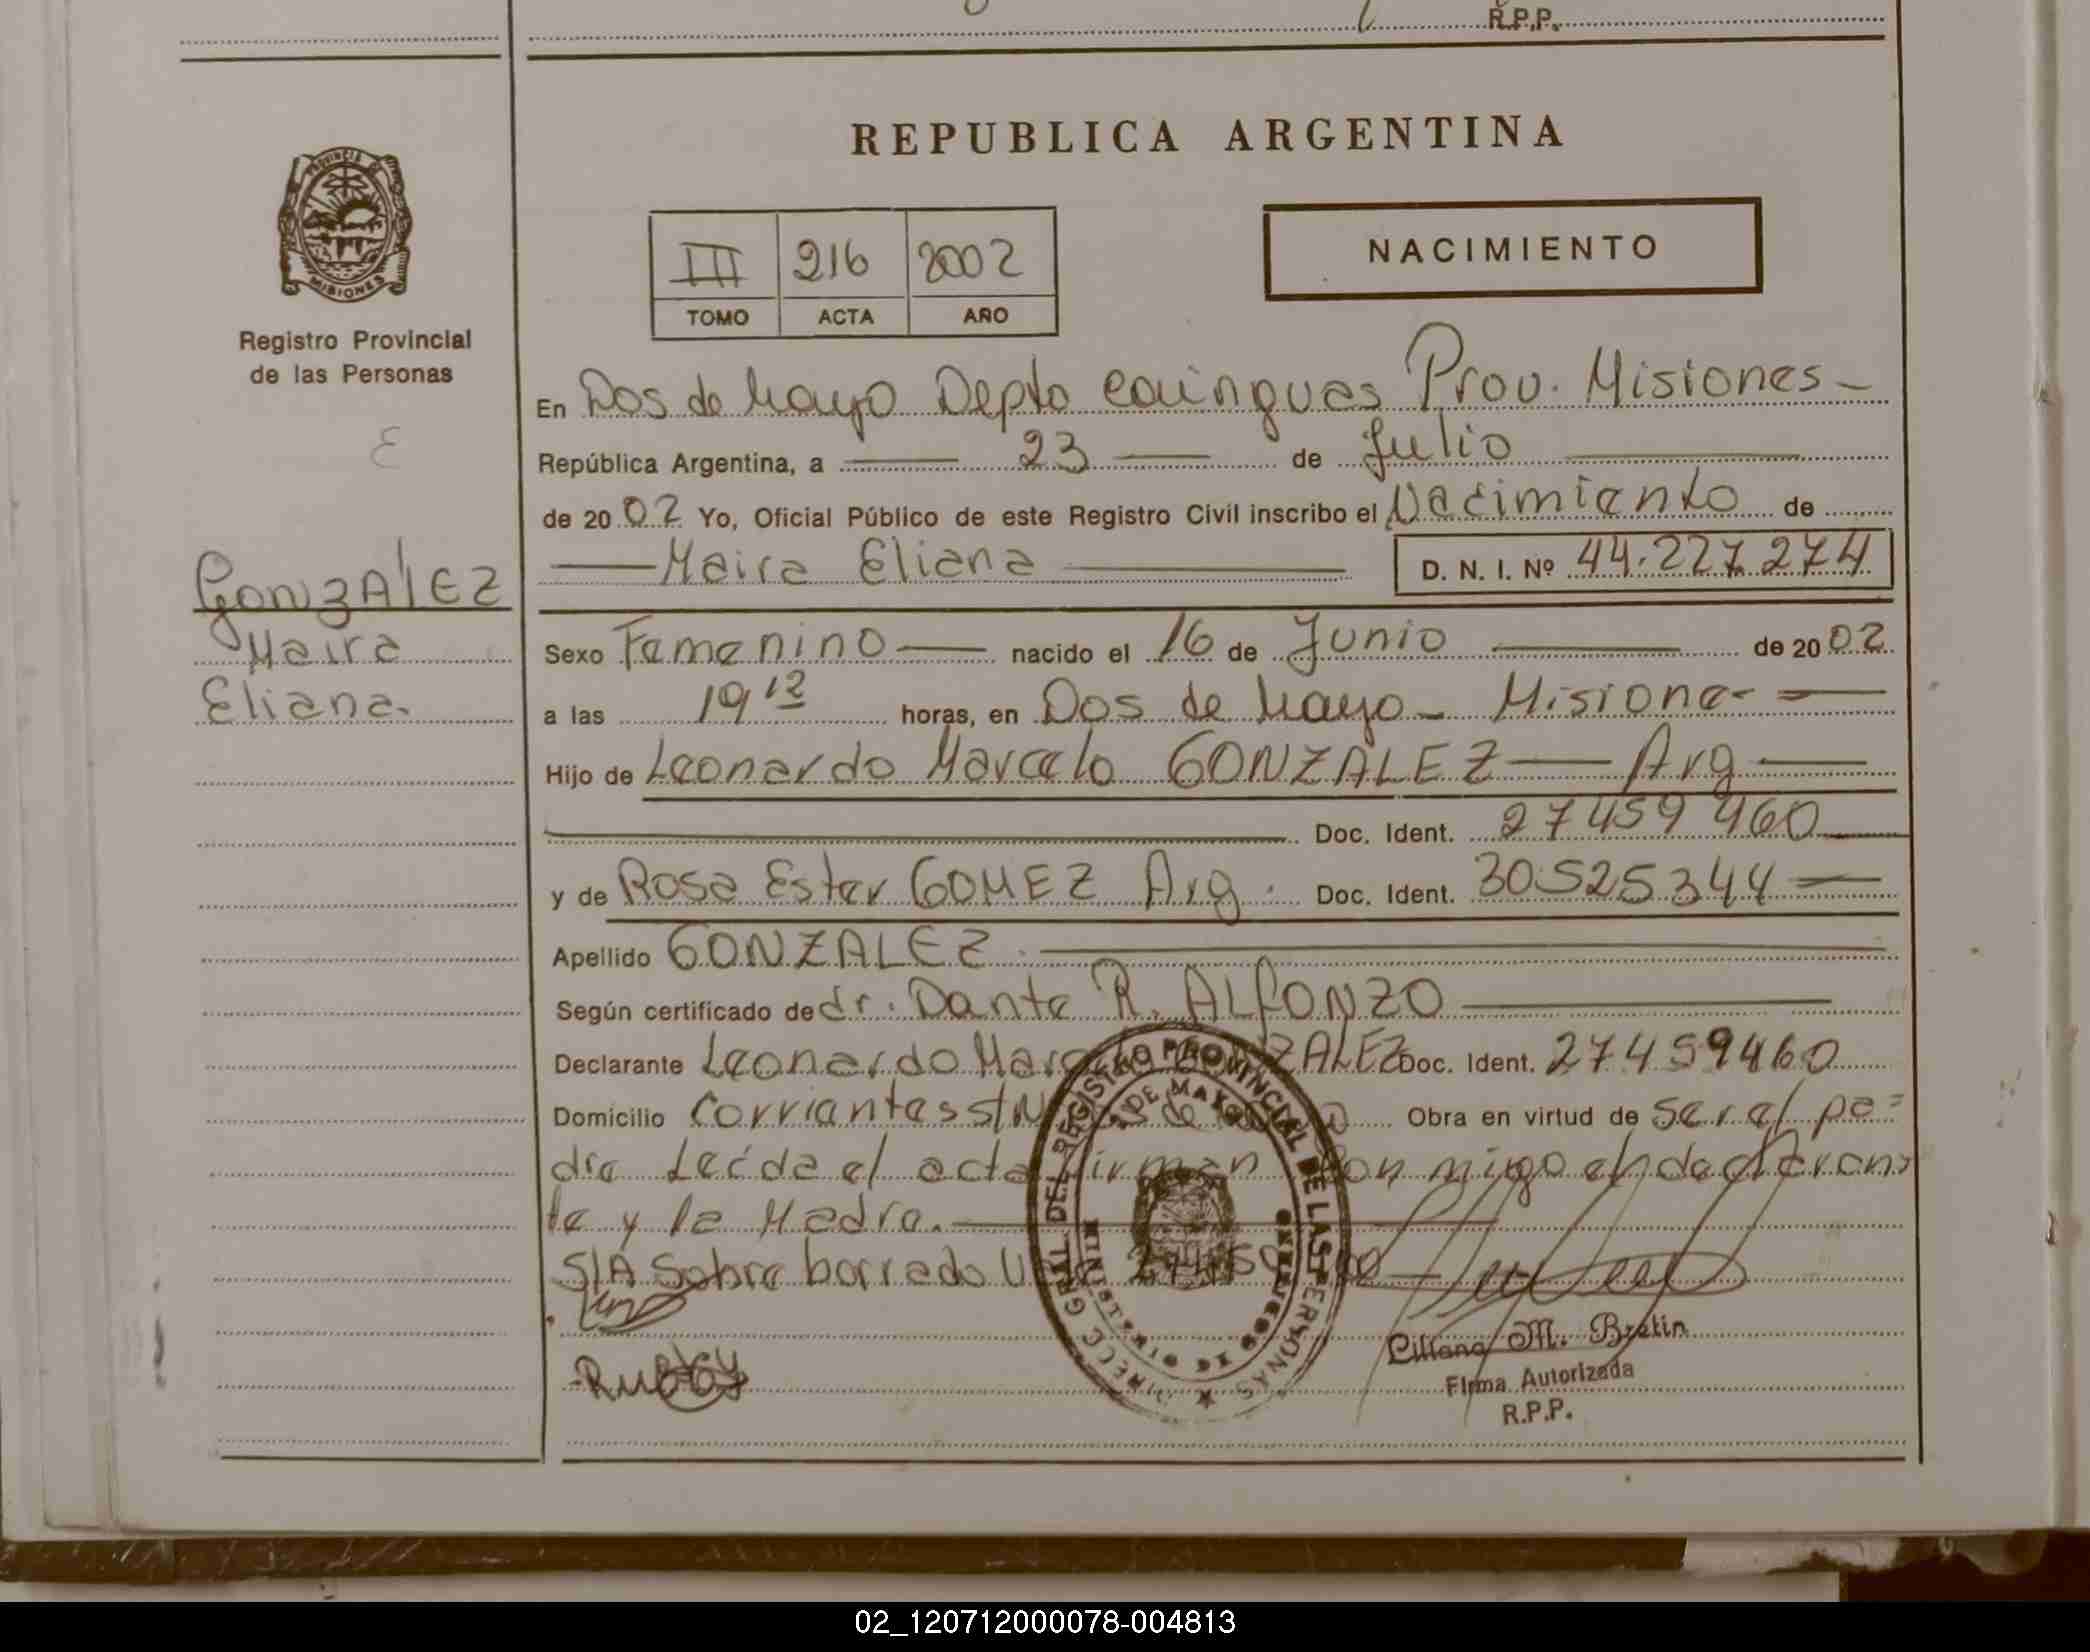 R.P.P.
REPUBLICA ARGENTINA
PROVINCIA DE
MISIONES
III 216 2002
TOMO ACTA AÑO
NACIMIENTO
Registro Provincial
de las Personas
En Dos de Mayo Depto Cainguas Prov. Misiones
República Argentina, a 23 de Julio
de 2002 Yo, Oficial Público de este Registro Civil inscribo el Nacimiento de
Maira Eliana D. N. I. Nº 44.227.274
GONZALEZ
Maira
Eliana
Sexo Femenino nacido el 16 de Junio de 2002
a las 19 12 horas, en Dos de Mayo - Misiones
Hijo de Leonardo Marcelo GONZALEZ Arg
Doc. Ident. 27459460
y de Rosa Ester GOMEZ Arg. Doc. Ident. 30.525.344
Apellido GONZALEZ
Según certificado de dr. Dante R. ALFONZO
Declarante Leonardo Marcelo GONZALEZ Doc. Ident. 27459460
Domicilio Corrientes S/N Dos de Mayo Obra en virtud de ser el pa=
dre Leída el acta firman con migo el declaran=
te y la Madre.
S/A Sobre borrado Vale 27459460
DIRECC. GRAL. DEL REGISTRO PROVINCIAL DE LAS PERSONAS
2 DE MAYO
MINISTERIO DE GOBIERNO
Liliana M. Bretin
Firma Autorizada
R.P.P.
02_120712000078-004813